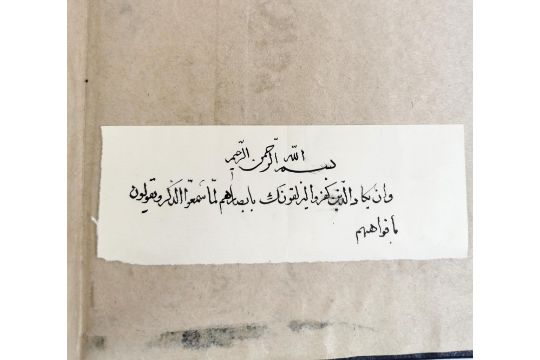 بسم الله الرحمن الرحيم
وان يكاد الذين كفروا ليزلقونك بابصارهم لما سمعوا الذكر ويقولون
بافواههم